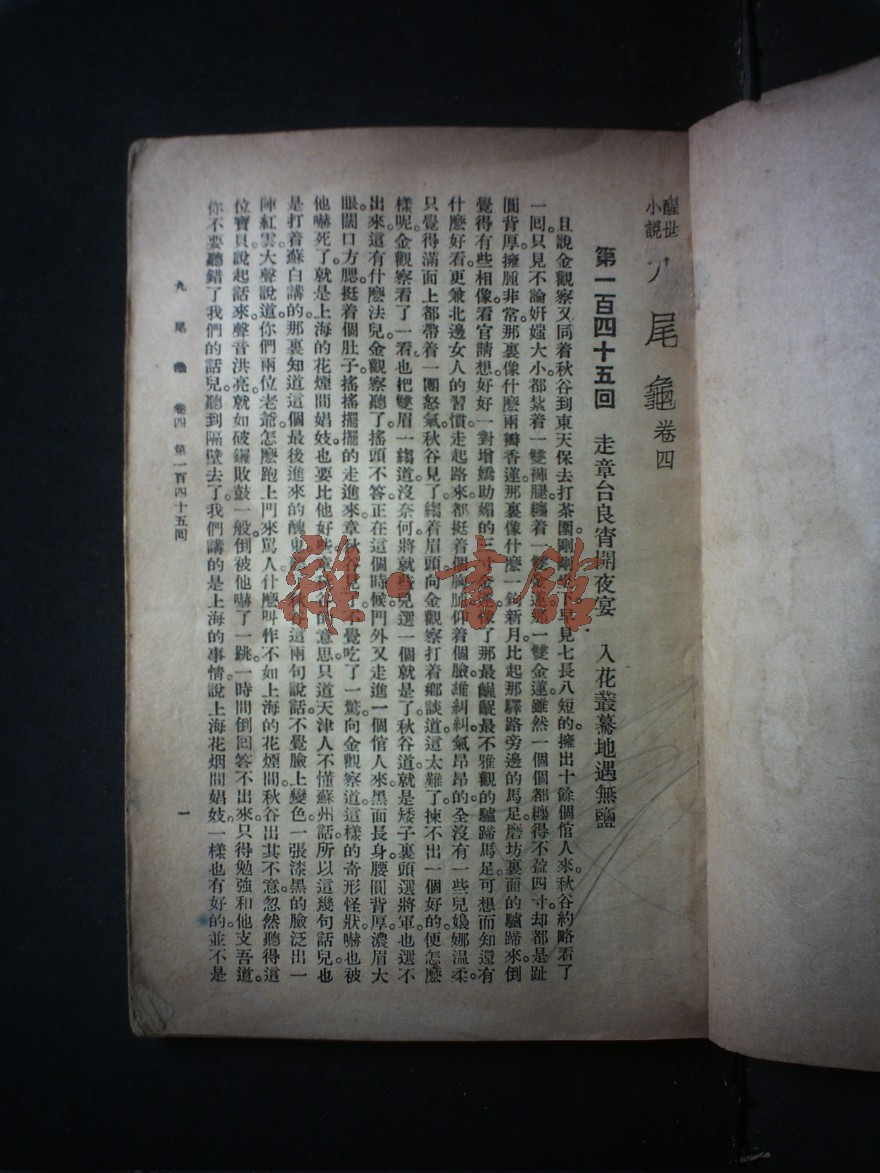 醒世小說 九尾龜 卷四
第一百四十五回 走章台良宵開夜宴 入花叢驀地遇無鹽
且說金觀察又同着秋谷到東天保去打茶圍剛剛坐下早見七長八短的擁出十餘個倌人來。秋谷約略看了
一回。只見不論妍媸大小都紮着一雙褲腿。纏着一雙金蓮。那一雙金蓮雖然一個個都纏得不盈四寸。却都是趾
圓背厚。擁腫非常。那裏像什麽兩瓣香蓮。那裏像什麽一鉤新月。比起那驛路旁邊的馬足。磨坊裏面的驢蹄來。倒
覺得有些相像。看官請想好好一對增嬌助媚的三寸金蓮像了那最齷齪最不雅觀的驢蹄馬足。可想而知還有
什麽好看。更兼北邊女人的習慣。走起路來。都挺着個胸脯仰着個臉。雄糾糾氣昂昂的。全沒有一些兒嬝娜溫柔。
只覺得滿面上都帶着一團怒氣。秋谷見了。縐着眉頭向金觀察打着鄉談道。這太難了。揀不出一個好的。便怎麽
樣呢。金觀察看了一看。也把雙眉一縐道。沒奈何。將就些兒選一個就是了。秋谷道。就是矮子裏頭選將軍。也選不
出來。這有什麽法兒。金觀察聽了。搖頭不答。正在這個時候。門外又走進一個倌人來。黑面長身。腰圓背厚。濃眉大
眼。闊口方腮。挺着個肚子。搖搖擺擺的走進來。章秋谷見了。不覺吃了一驚。向金觀察道。這樣的奇形怪狀。嚇也被
他嚇死了。就是上海的花煙間娼妓。也要比他好些。章秋谷的意思。只道天津人不懂蘇州話。所以這幾句話兒。也
是打着蘇白講的。那裏知道這個最後進來的醜鬼聽了秋谷這兩句說話。不覺臉上變色。一張漆黑的臉泛出一
陣紅雲。大聲說道。你們兩位老爺。怎麽跑上門來罵人。什麽叫作不如上海的花煙間。秋谷出其不意。忽然聽得這
位寶貝說起話來。聲音洪亮。就如破鑼敗鼓一般。倒被他嚇了一跳。一時間倒回答不出來。只得勉強和他支吾道。
你不要聽錯了我們的話兒。聽到隔壁去了。我們講的是上海的事情。說上海花烟間娼妓。一樣也有好的。並不是
九尾龜 卷四 第一百四十五回 一
雜·書館